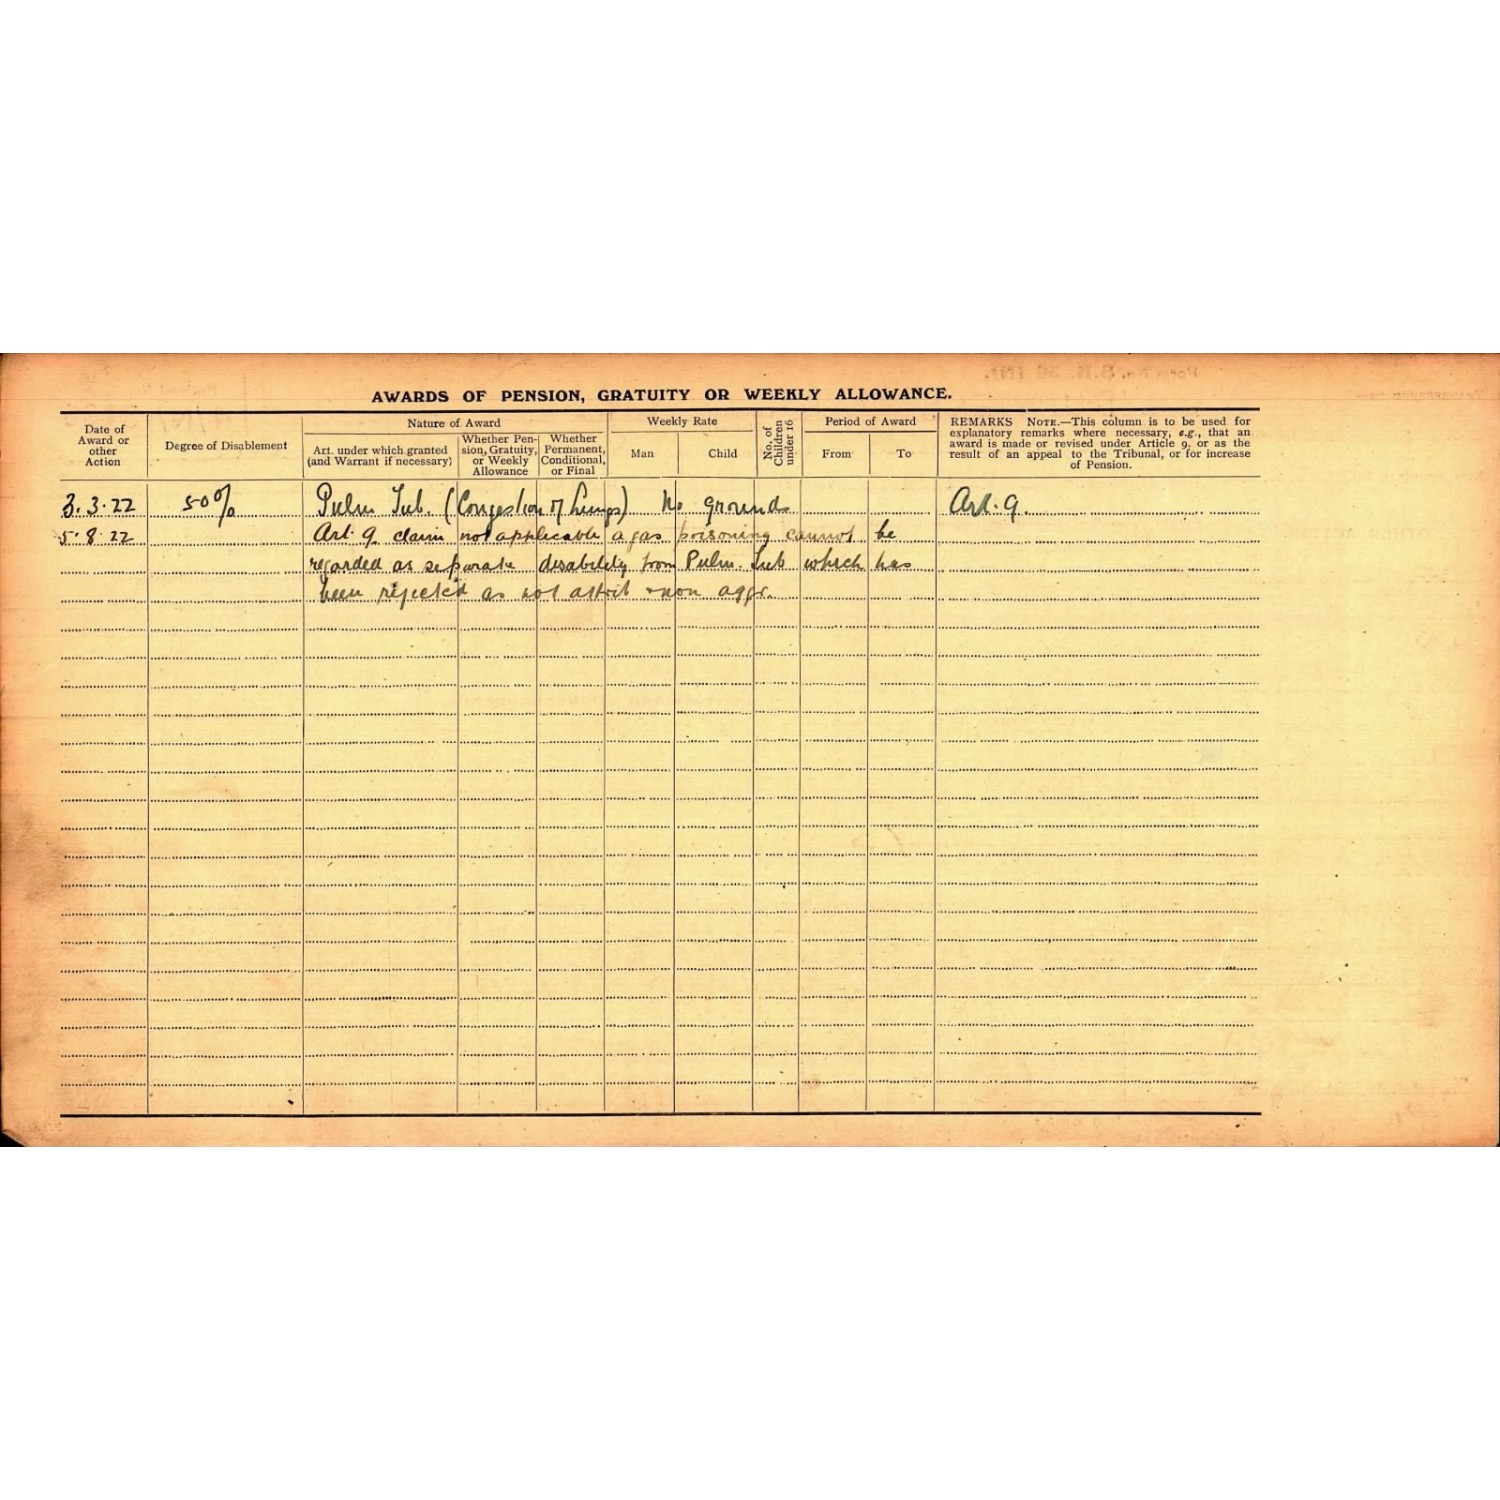 AWARDS OF PENSION, GRATUITY OR WEEKLY ALLOWANCE.
Date of
Award or
other
Action
Degree of Disablement
Nature of Award
Art. under which granted
(and Warrant if necessary)
Whether Pen-
sion, Gratuity,
or Weekly
Allowance
Whether
Permanent,
Conditional,
or Final
Weekly Rate
Man
Child
No. of
Children
under 16
Period of Award
From
To
REMARKS NOTE.—This column is to be used for
explanatory remarks where necessary, e.g., that an
award is made or revised under Article 9, or as the
result of an appeal to the Tribunal, or for increase
of Pension.
3.3.22 50% Pulm Tub. (Congestion of Lungs) No grounds Art. 9
5.8.22 Art. 9 claim not applicable a gas poisoning cannot be
regarded as separate disability from Pulm. Tub which has
been rejected as not attrib & non aggr.